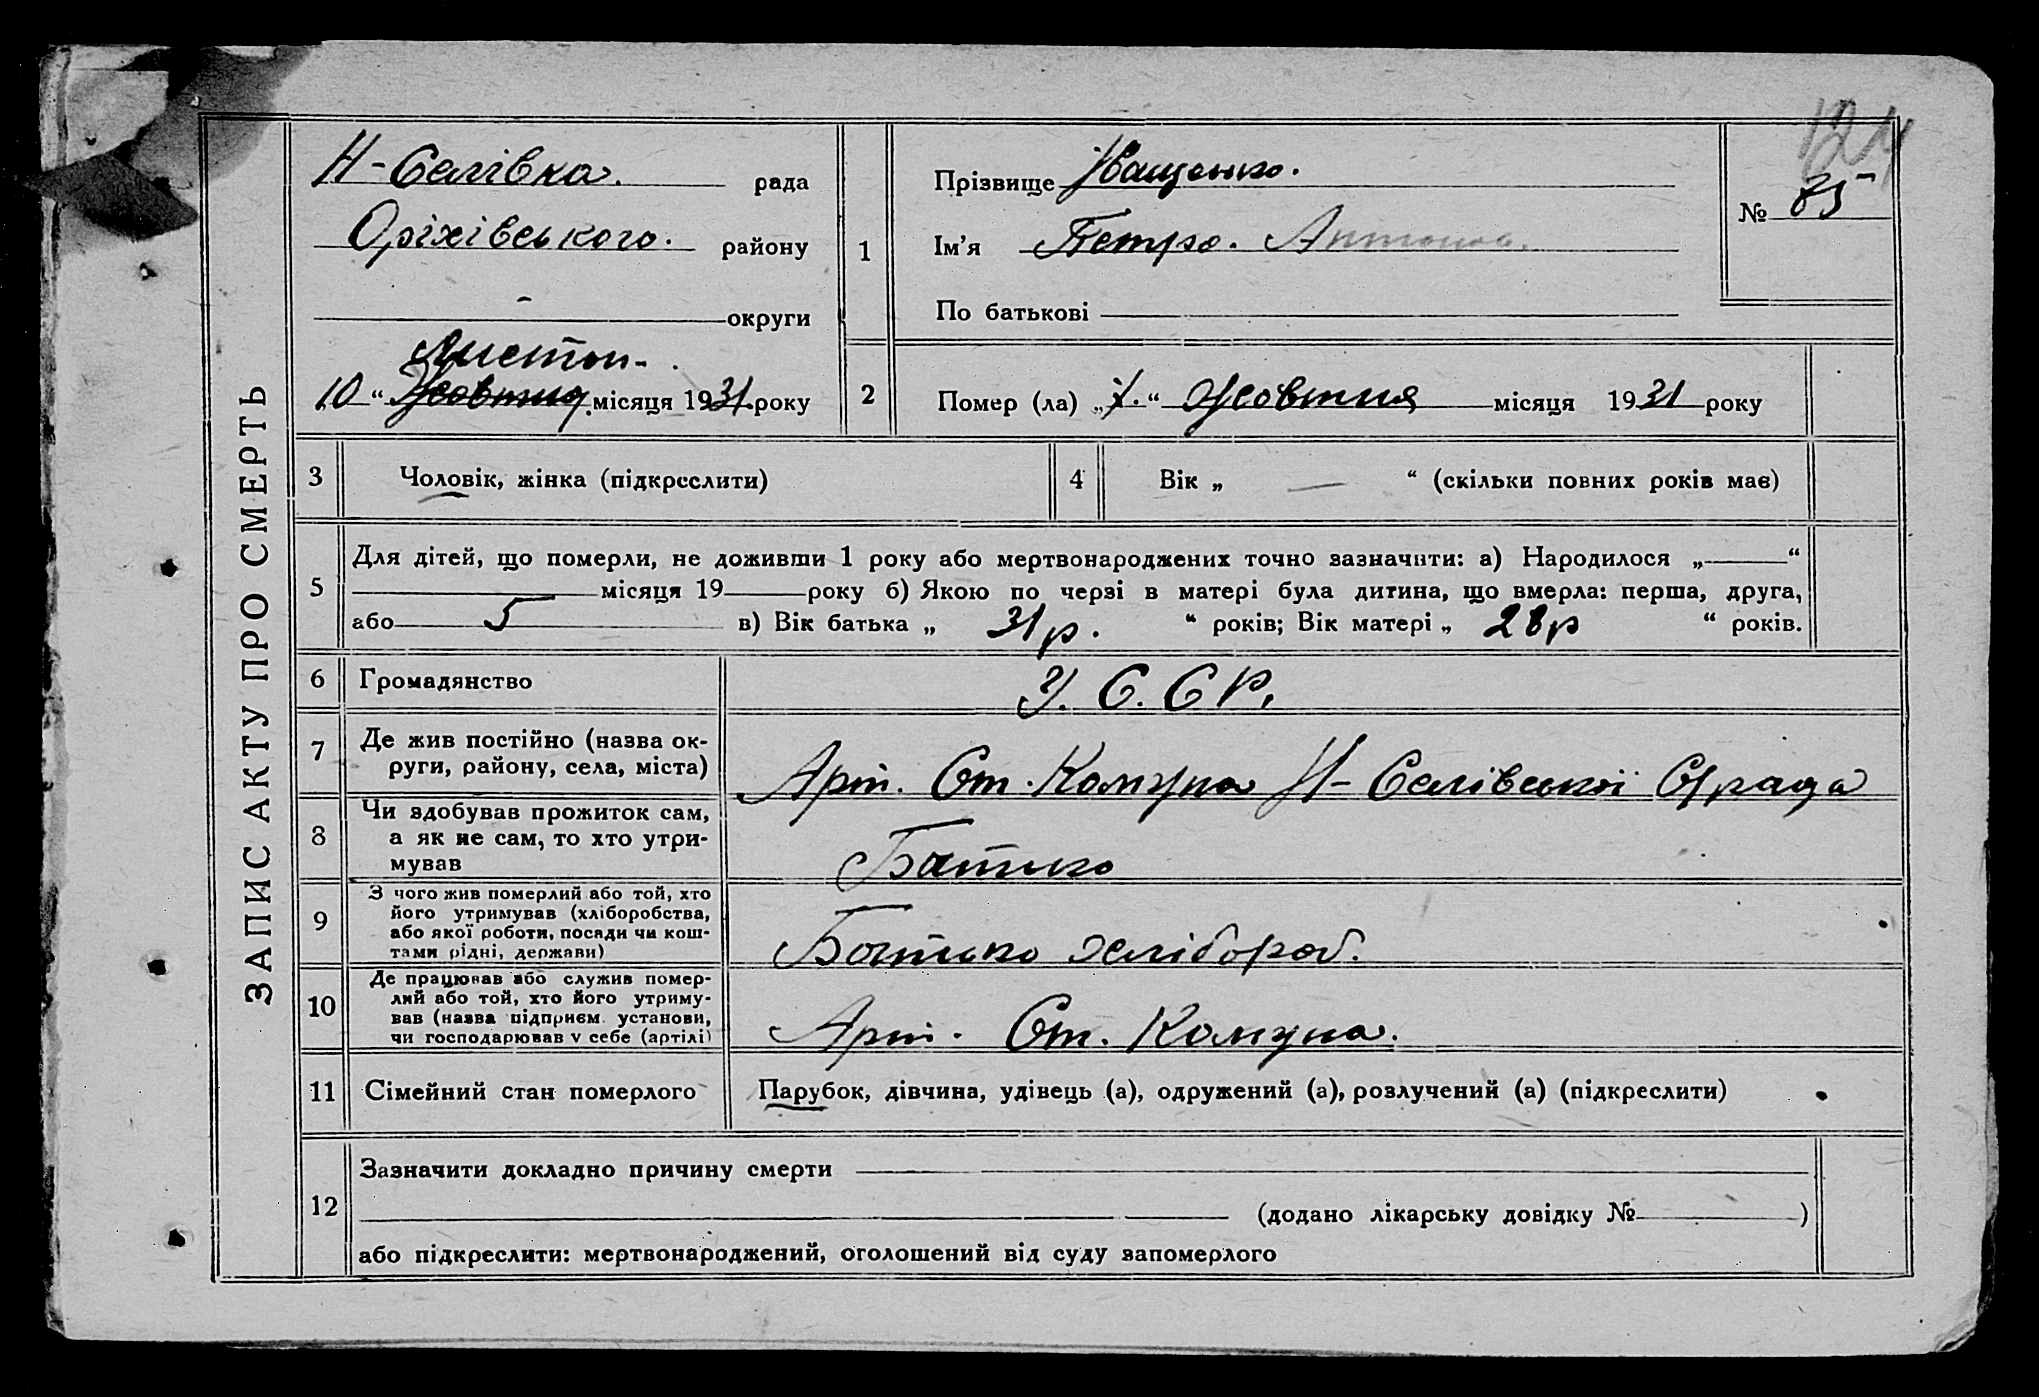 124
ЗАПИС АКТУ ПРО СМЕРТЬ
Н-Селівка. рада
Оріхівського. району
- округи
Листоп.
10 “ Жовтня місяця 1931 року
1
Прізвище Іващенко.
Ім’я Петро. Антонов.
По батькові
№ 85
2 Помер (ла) „ “ Жовтня місяця 1931 року
3 Чоловік, жінка (підкреслити)
4 Вік „ — “ (скільки повних років має)
5 Для дітей, що померли, не доживши 1 року або мертвонароджених точно зазначити: а) Народилося „ “
місяця 19 року б) Якою по черзі в матері була дитина, що вмерла: перша, друга,
або 5 в) Вік батька „ 31 р. “ років; Вік матері „ 28 р “ років.
6 Громадянство У. С. С Р.
7 Де жив постійно (назва ок-
руги, району, села, міста) Арт. Ст. Комуна Н-Селівської С/рада
8 Чи здобував прожиток сам,
а як не сам, то хто утри-
мував Батько
9 З чого жив померлий або той, хто
його утримував (хліборобства,
або якої роботи, посади чи кош-
тами рідні, держави) Батько хлібороб.
10 Де працював або служив помер-
лий або той, хто його утриму-
вав (назва підприєм. установи,
чи господарював у себе (артілі) Арт. Ст. Комуна.
11 Сімейний стан померлого Парубок, дівчина, удівець (а), одружений (а), розлучений (а) (підкреслити)
12 Зазначити докладно причину смерти
(додано лікарську довідку № )
або підкреслити: мертвонароджений, оголошений від суду запомерлого